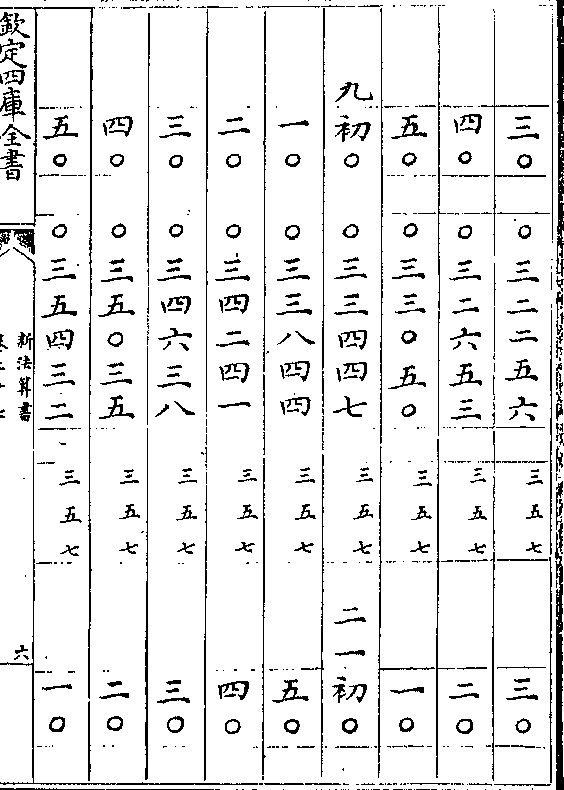 三〇 〇三二二五六 三五七 三〇
四〇 〇三二六五三 三五七 二〇
五〇 〇三三〇五〇 三五七 一〇
九初〇 〇三三四四七 三五七 二一初〇
一〇 〇三三八四四 三五七 五〇
二〇 〇三四二四一 三五七 四〇
三〇 〇三四六三八 三五七 三〇
四〇 〇三五〇三五 三五七 二〇
五〇 〇三五四三二 三五七 一〇
欽定四庫全書
新法算書
六